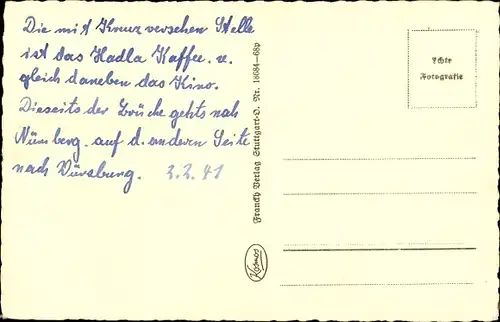 Die mit Kreuz versehen Stelle
ist das Hadla Kaffee. u.
gleich daneben das Kino.
Dieseits der Brücke gehts nah
Nürnberg. auf d. andern Seite
nach Würzburg. 2.2.41
Franckh Verlag Stuttgart-O. Nr. 18684—68p
Kosmos
Echte
Fotografie